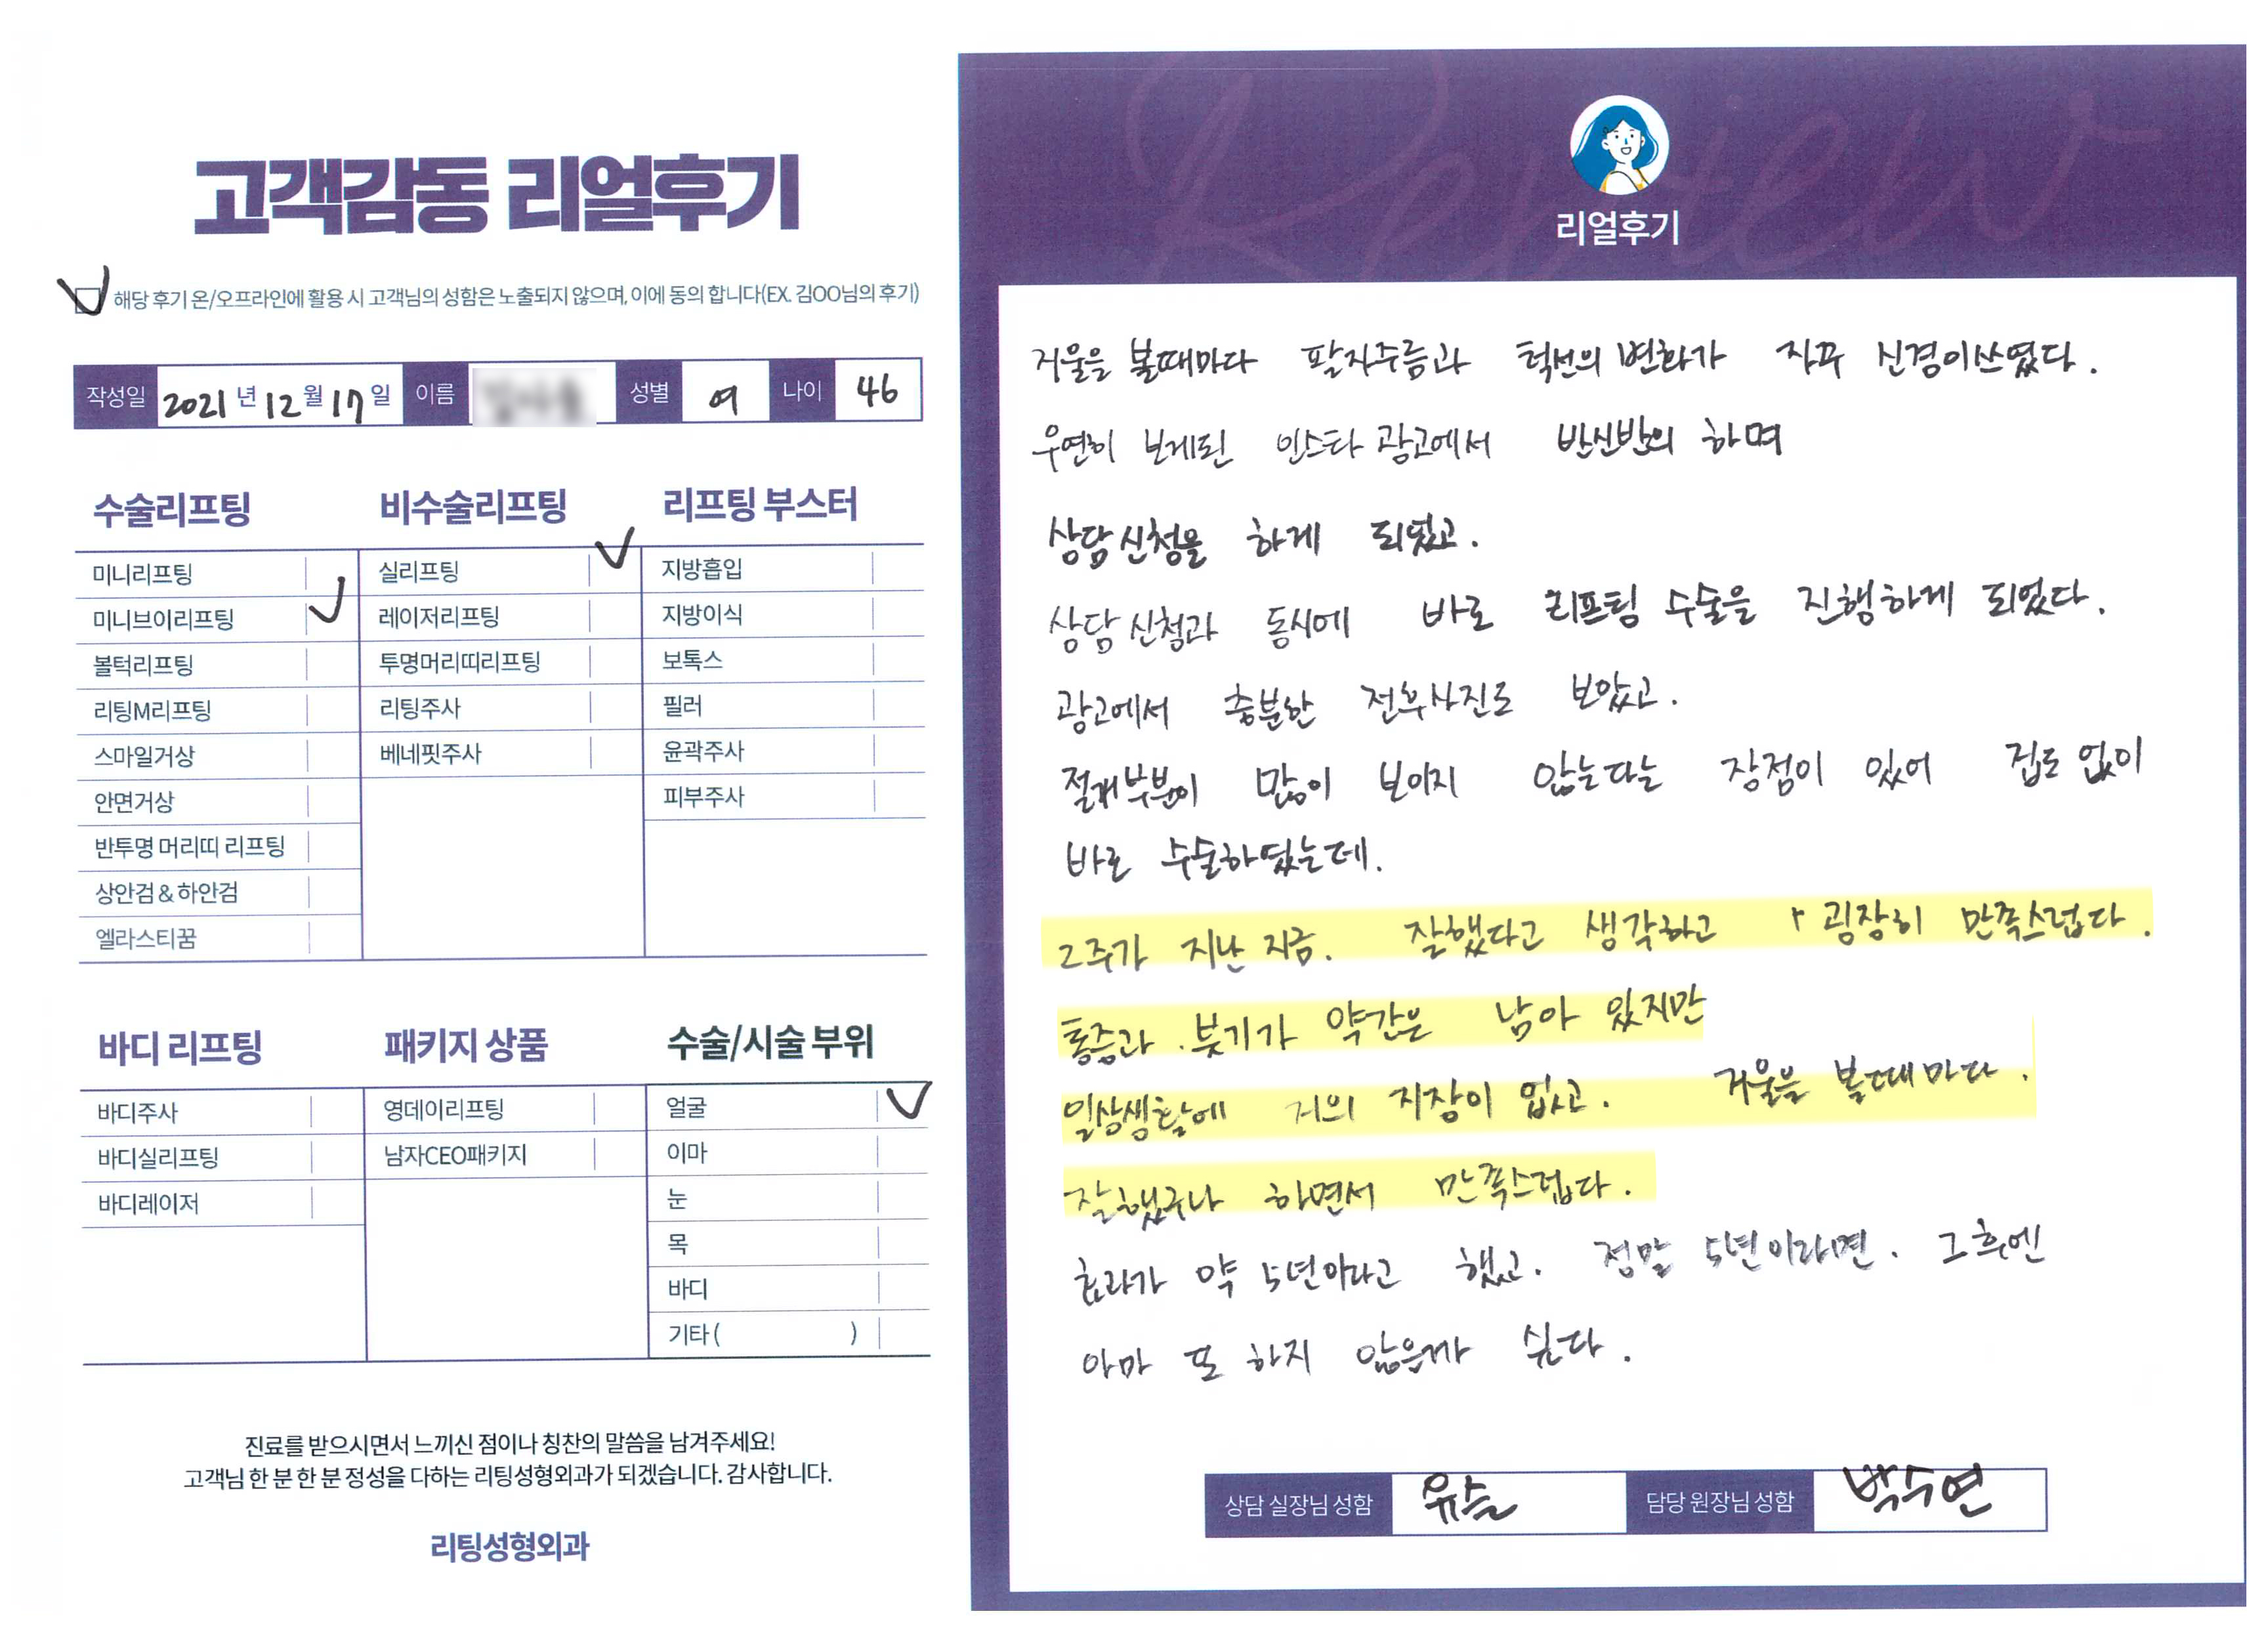 고객감동 리얼후기
해당 후기 온/오프라인에 활용 시 고객님의 성함은 노출되지 않으며, 이에 동의 합니다(EX. 김OO님의 후기)
작성일 2021년 12월 17일 이름 성별 여 나이 46
수술리프팅
미니리프팅
미니브이리프팅
볼턱리프팅
리팅M리프팅
스마일거상
안면거상
반투명 머리띠 리프팅
상안검 & 하안검
엘라스티꿈
비수술리프팅
실리프팅
레이저리프팅
투명머리띠리프팅
리팅주사
베네핏주사
리프팅 부스터
지방흡입
지방이식
보톡스
필러
윤곽주사
피부주사
바디 리프팅
바디주사
바디실리프팅
바디레이저
패키지 상품
영데이리프팅
남자CEO패키지
수술/시술 부위
얼굴
이마
눈
목
바디
기타 ( )
진료를 받으시면서 느끼신 점이나 칭찬의 말씀을 남겨주세요!
고객님 한 분 한 분 정성을 다하는 리팅성형외과가 되겠습니다. 감사합니다.
리팅성형외과
Review
리얼후기
거울을 볼때마다 팔자주름과 턱선의 변화가 자꾸 신경이쓰였다.
우연히 보게된 인스타 광고에서 반신반의 하며
상담신청을 하게 되었고.
상담 신청과 동시에 바로 리프팅 수술을 진행하게 되었다.
광고에서 충분한 전후사진도 보았고.
절개부분이 많이 보이지 않는다는 장점이 있어 겁도 없이
바로 수술하였는데.
2주가 지난 지금. 잘했다고 생각하고 굉장히 만족스럽다.
통증과 붓기가 약간은 남아 있지만
일상생활에 거의 지장이 없고. 거울을 볼때마다.
잘했구나 하면서 만족스럽다.
효과가 약 5년이라고 했고. 정말 5년이라면. 그후엔
아마 또 하지 않을까 싶다.
상담 실장님 성함 담당 원장님 성함 박수연